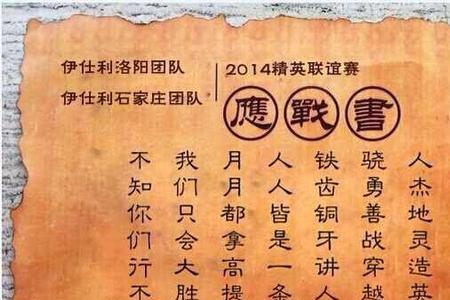 伊仕利洛阳团队
伊仕利石家庄团队
2014精英联谊赛
應戰書
人杰地灵造英
骁勇善战穿越
铁齿铜牙讲人
人人皆是一条
月月都拿高提
我们只会大胜
不知你们行不